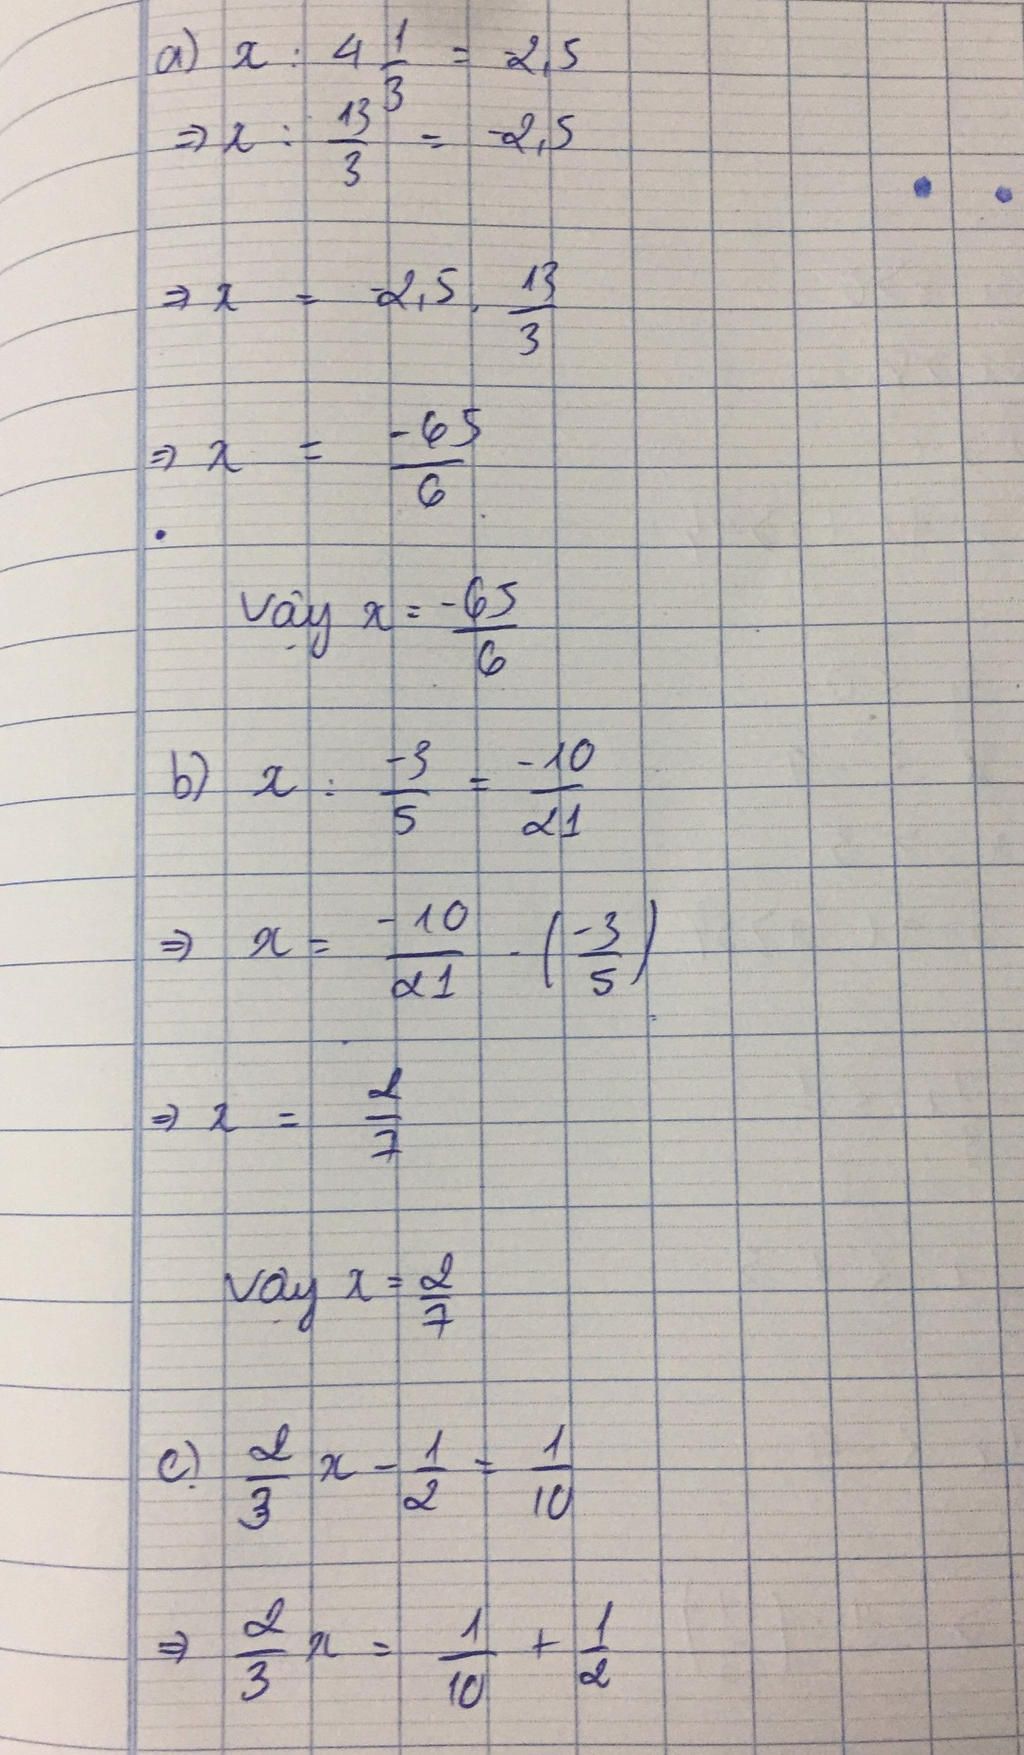 a) x : 4 1/3 = -2,5
⇒ x : 13/3 = -2,5
⇒ x = -2,5 . 13/3
⇒ x = -65/6
Vậy x = -65/6
b) x : -3/5 = -10/21
⇒ x = -10/21 . (-3/5)
⇒ x = 2/7
Vậy x = 2/7
c) 2/3 x - 1/2 = 1/10
⇒ 2/3 x = 1/10 + 1/2